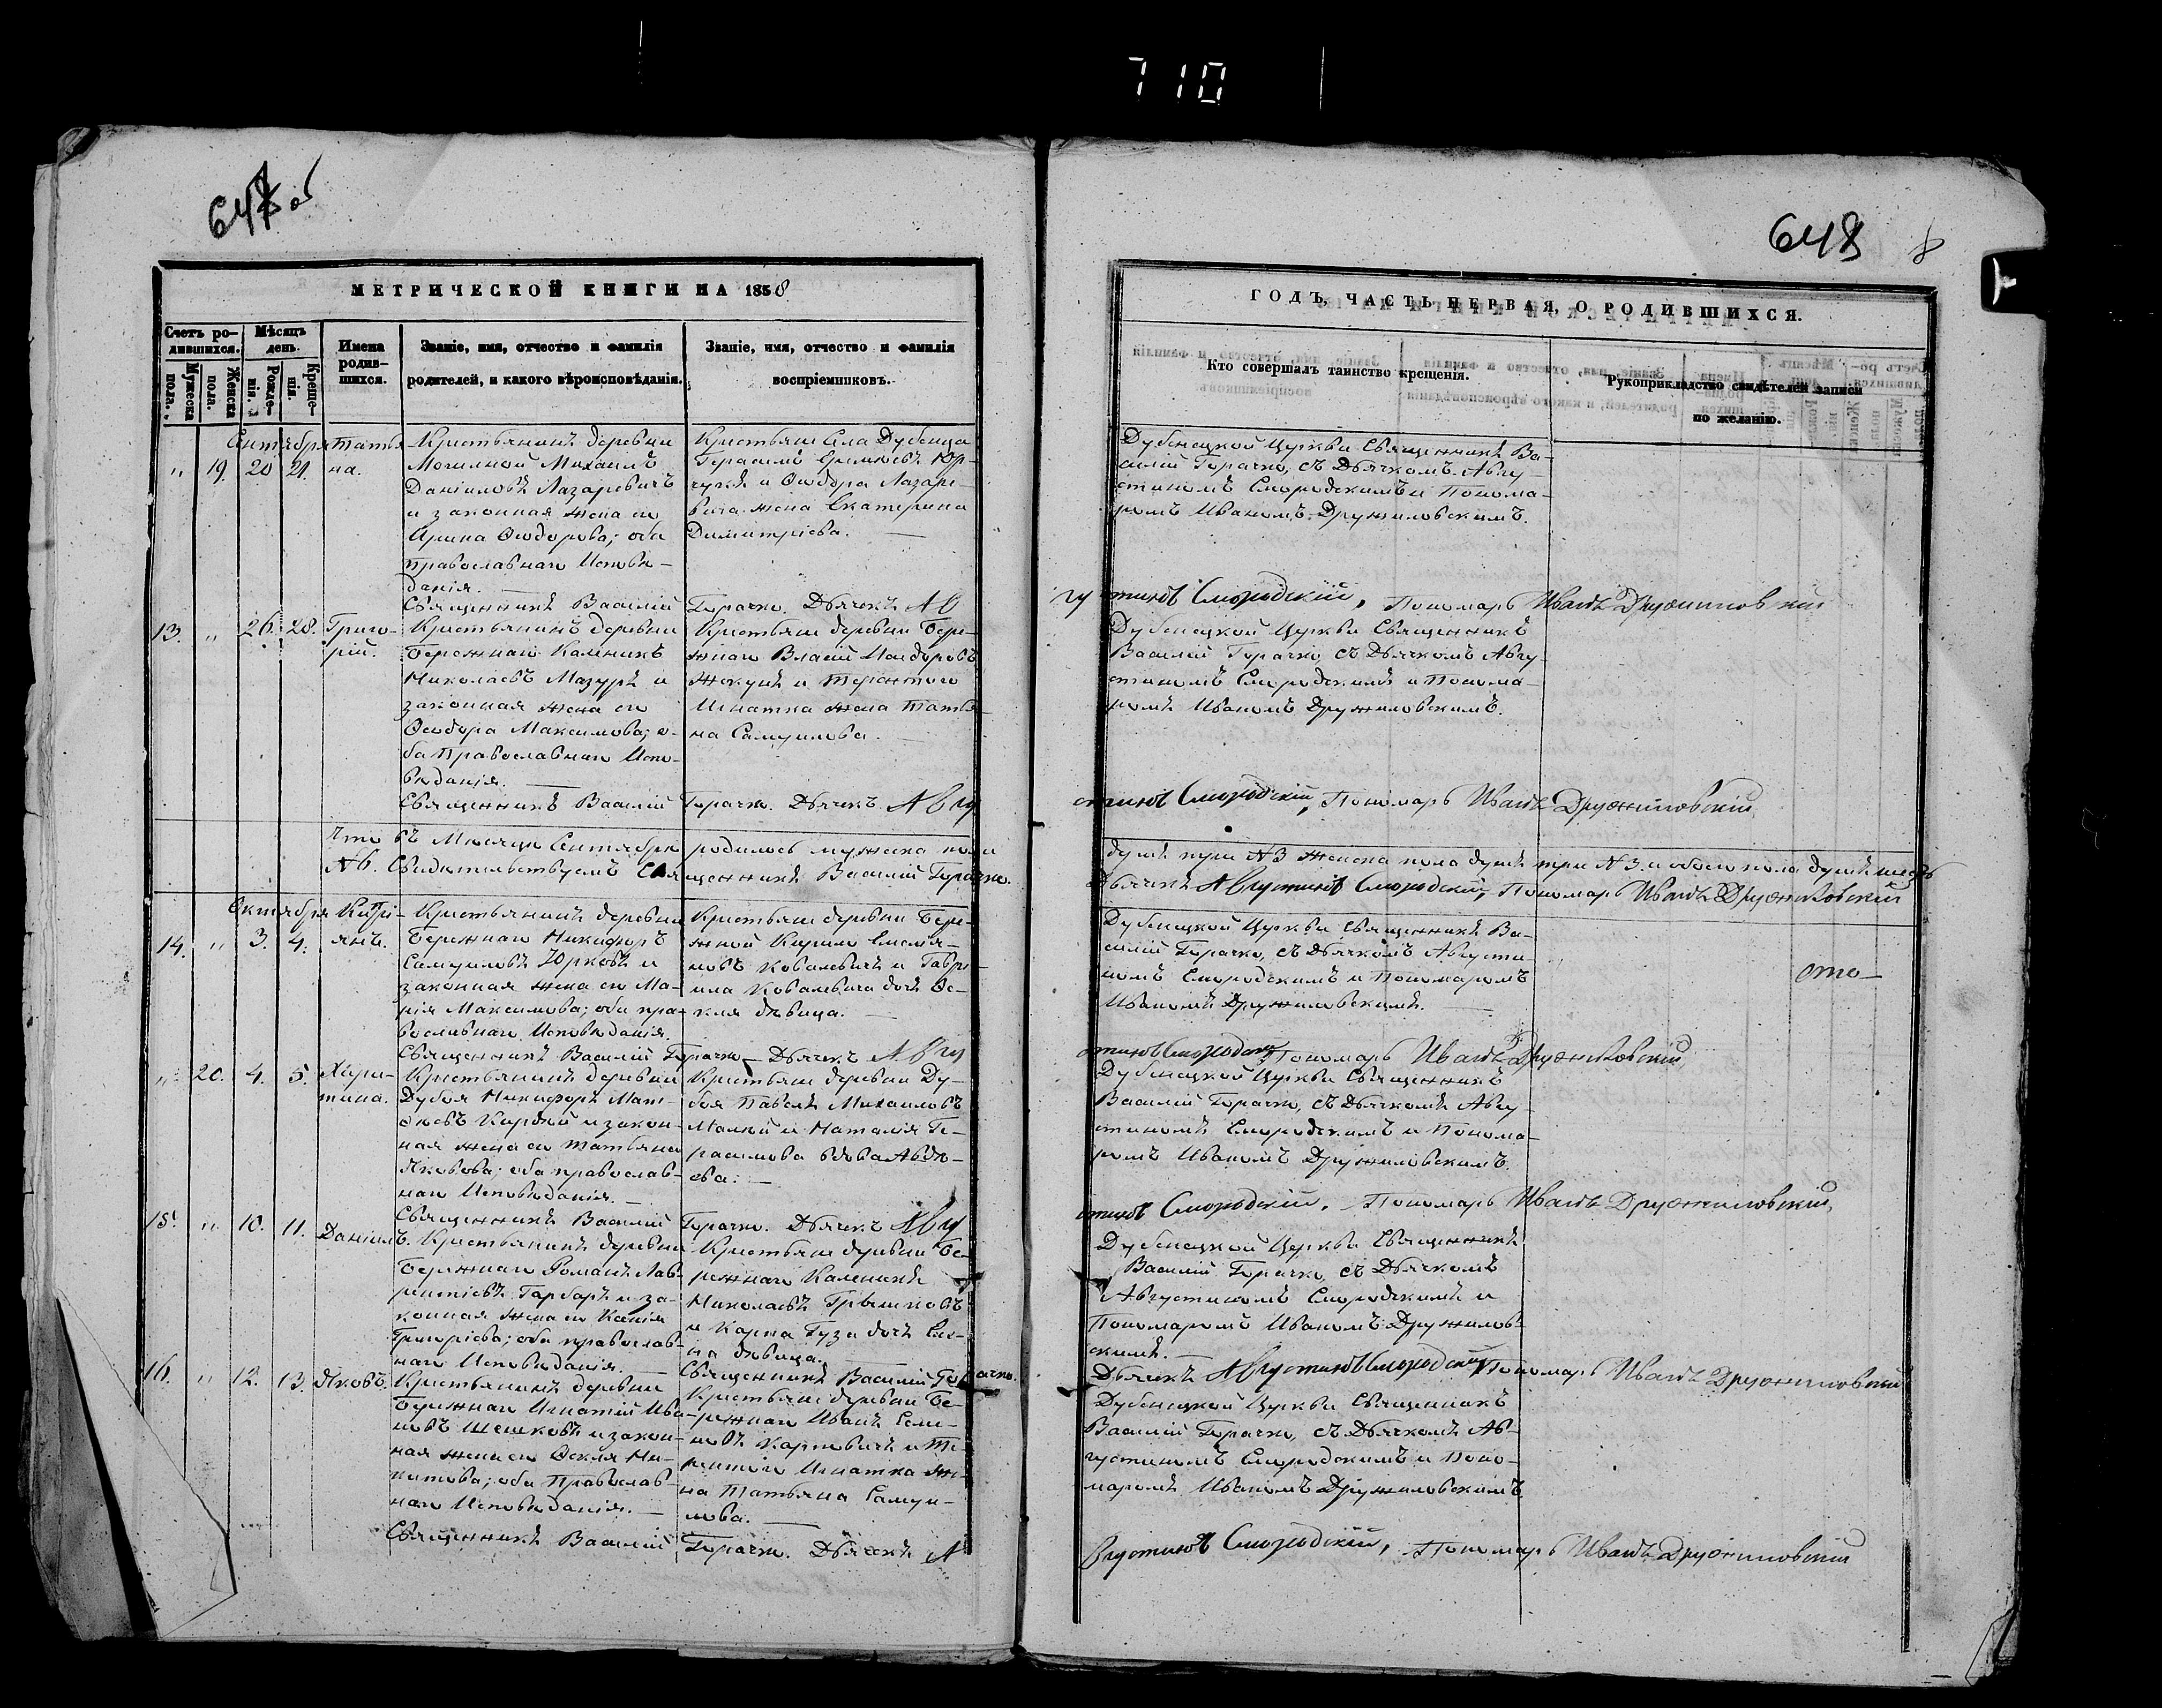 710
647 об
МЕТРИЧЕСКОЙ КНИГИ НА 1858
Счетъ ро-
дившихся.
Мѣсяцъ
день.
Мужеска
пола.
Женска
пола.
Рожде-
нія.
Креще-
нія.
Имена
родив-
шихся.
Званіе, имя, отчество и фамилія
родителей, и какого вѣроисповѣданія.
Званіе, имя, отчество и фамилія
воспріемниковъ.
Сентября
" 19. 20 21.
Татья
на.
Крестьянинъ деревни
Могилной Михаилъ
Даніиловъ Лазаревичъ
и законная жена его
Ирина Ѳеодорова; оба
православнаго Исповѣ-
данія.
Крестьяне Села Дубенца
Герасимъ Ермиловъ Юр-
чукъ и Ѳеодора Лазаре-
вича жена Екатерина
Димитріева.
Священникъ Василій Горачко. Дьячекъ Ав
13. " 26. 28.
Григо-
рій.
Крестьянинъ деревни
Бережнаго Калиникъ
Николаевъ Мазуръ и
законная жена его
Ѳеодора Максимова; о-
ба Православнаго Испо-
вѣданія.
Крестьяне деревни Бере-
жнаго Власій Исидоровъ
Жокунъ и Терентого
Игнатка жена Татья-
на Самуилова.
Священникъ Василій Горачко. Дьячекъ Авгу
Что въ Мѣсяцѣ Сентябрѣ родилось мужеска пола
№6. Свидѣтельствуемъ Священникъ Василій Горачко.
Октября
14. " 3. 4.
Кипрі-
янъ.
Крестьянинъ деревни
Бережнаго Никифоръ
Самуиловъ Юрковъ и
законная жена его Ма-
рія Максимова; оба пра-
вославнаго Исповѣданія.
Крестьяне деревни Бере-
жной Кирило Емелія-
новъ Ковалевичъ и Гаври-
ила Ковалевича дочь Ѳе-
кля дѣвица.
Священникъ Василій Горачко – Дьячекъ Авгу
" 20. 4. 5.
Хари-
тина.
Крестьянинъ деревни
Дубоя Никифоръ Мат-
ѳѣевъ и закон-
ная жена его Татьяна
Яковова; оба православ-
наго Исповѣданія.
Крестьяне деревни Ду-
боя Павелъ Михаиловъ
Малкій и Наталія Ге-
расимова вдова Авдѣ-
ева.
Священникъ Василій Горачко. Дьячекъ Авгу
15. " 10. 11.
Даніилъ.
Крестьянинъ деревни
Бережнаго Романъ Лав-
рентіевъ Гарбаръ и за-
конная жена его Ксенія
Григоріева; оба православ-
наго Исповѣданія.
Крестьяне деревни Бе-
режнаго Калиникъ
Николаевъ Гришковъ
и Карпа Гуза дочь Еле-
на дѣвица.
Священникъ Василій Горачко.
16. " 12. 13.
Яковъ.
Крестьянинъ деревни
Бережнаго Игнатій Ива-
новъ Шешковъ и закон-
ная жена его Ѳекля Ни-
китова; оба Православ-
наго Исповѣданія.
Крестьяне деревни Бе-
режнаго Иванъ Семе-
новъ Карповичъ и Те-
рентого Игнатка же-
на Татьяна Самуи-
лова.
Священникъ Василій Горачко. Дьячекъ А
648
8
ГОДЪ, ЧАСТЬ ПЕРВАЯ, О РОДИВШИХСЯ.
Кто совершалъ таинство крещенія.
Рукоприкладство свидѣтелей записи
по желанію.
Дубенецкой Церкви Священникъ Ва-
силій Горачко, съ Дьячкомъ Авгу-
стиномъ Смородскимъ и Понома-
ромъ Иваномъ Дружиловскимъ.
густинъ Смородскій, Пономарь Иванъ Дружиловскій
Дубенецкой Церкви Священникъ
Василій Горачко, съ Дьячкомъ Авгу-
стиномъ Смородскимъ и Понома-
ромъ Иваномъ Дружиловскимъ.
стинъ Смородскій, Пономарь Иванъ Дружиловскій
душъ три №3 женска пола душъ три №3. а обоего пола душъ шесть
Дьячекъ Августинъ Смородскій, Пономарь Иванъ Дружиловскій
Дубенецкой Церкви Священникъ Ва-
силій Горачко, съ Дьячкомъ Августи-
номъ Смородскимъ и Пономаромъ
Иваномъ Дружиловскимъ.
ото
стинъ Смородскій Пономарь Иванъ Дружиловскій,
Дубенецкой Церкви Священникъ
Василій Горачко, съ Дьячкомъ Авгу-
стиномъ Смородскимъ и Понома-
ромъ Иваномъ Дружиловскимъ.
стинъ Смородскій. Пономарь Иванъ Дружиловскій,
Дубенецкой Церкви Священникъ
Василій Горачко, съ Дьячкомъ
Августиномъ Смородскимъ и
Пономаромъ Иваномъ Дружилов-
скимъ.
Дьячекъ Августинъ Смородскій Пономарь Иванъ Дружиловскій
Дубенецкой Церкви Священникъ
Василій Горачко, съ Дьячкомъ Ав-
густиномъ Смородскимъ и Поно-
маромъ Иваномъ Дружиловскимъ.
вгустинъ Смородскій, Пономарь Иванъ Дружиловскій